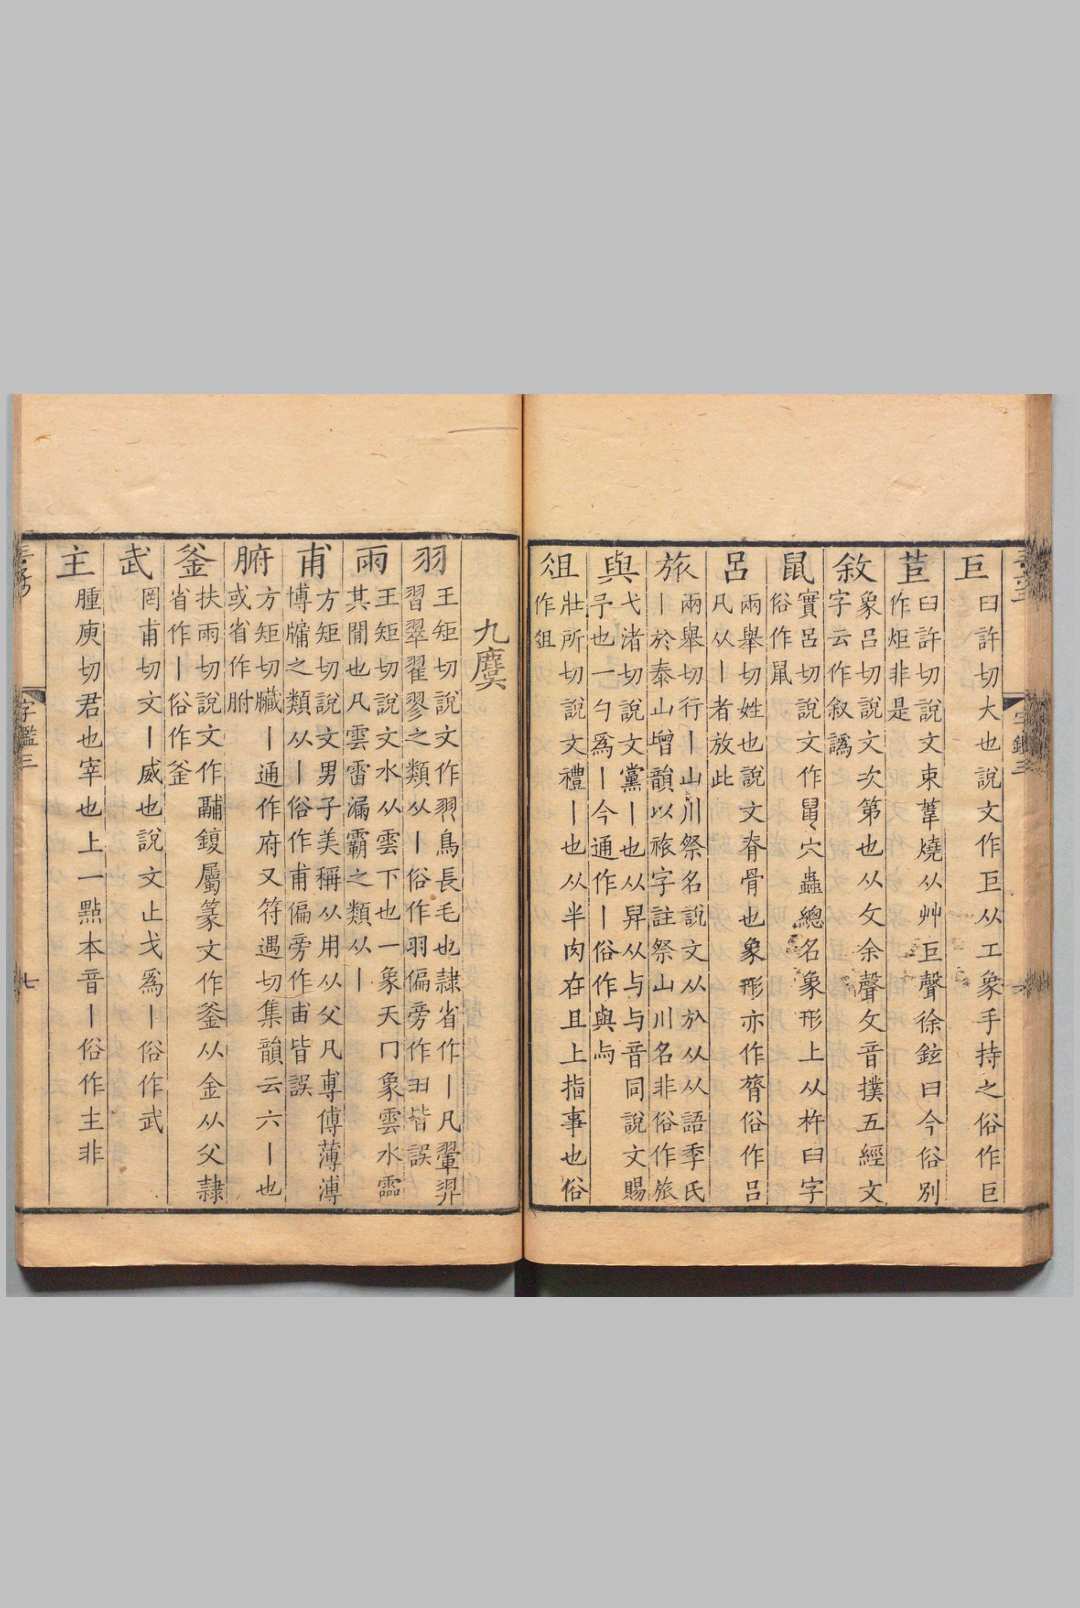 巨
臼許切大也說文作巨从工象手持之俗作巨
苣
臼許切說文束葦燒从艸巨聲徐鉉曰今俗別
作炬非是
敘
象呂切說文次第也从攵余聲攵音撲五經文
字云作叙譌
鼠
賞呂切說文作鼠穴蟲總名象形上从杵臼字
俗作鼡
呂
兩舉切姓也說文脊骨也象形亦作膂俗作吕
凡从丨者放此
旅
兩舉切行丨山川祭名說文从㫃从从語季氏
丨於泰山增韻以旅字註祭山川名非俗作旅
與
弋渚切說文黨丨也从舁从与与音同說文賜
予也一勺爲丨今通作丨俗作與与
俎
壯所切說文禮丨也从半肉在且上指事也俗
作俎
九麌
羽
王矩切說文作羽鳥長毛也隷省作丨凡翬羿
習翠翟翏之類从丨俗作羽偏旁作羽皆誤
雨
王矩切說文水从雲下也一象天冂象雲水霝
其間也凡雲雷漏霸之類从丨
甫
方矩切說文男子美稱从用从父凡尃傅薄溥
博牖之類从丨俗作甫偏旁作甫皆誤
腑
方矩切臟丨通作府又符遇切集韻云六丨也
或省作胕
釜
扶雨切說文作鬴鍑屬篆文作釜从金从父隷
省作丨俗作釡
武
罔甫切文丨威也說文止戈爲丨俗作武
主
腫庾切君也宰也上一點本音丨俗作主非
字鑑三
七